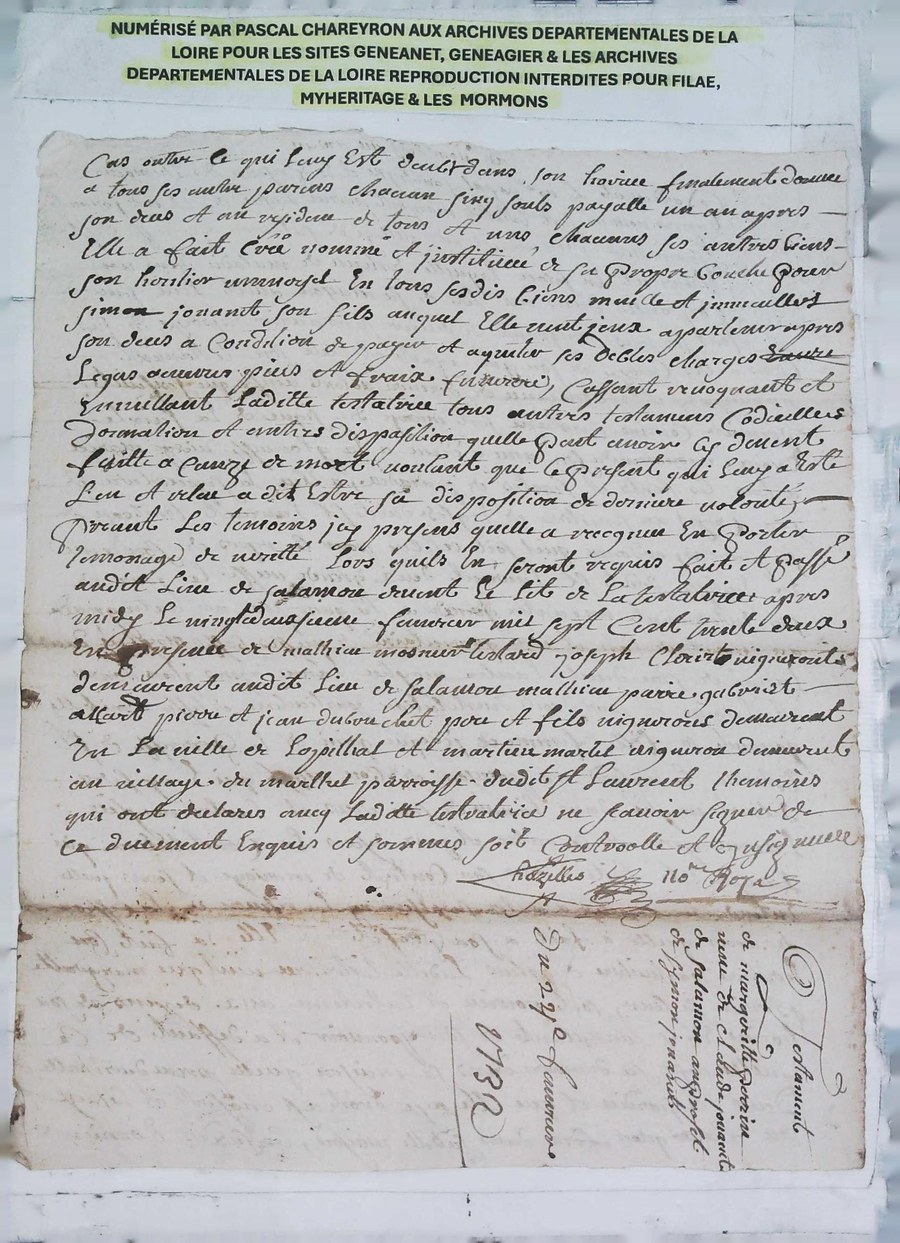 NUMÉRISÉ PAR PASCAL CHAREYRON AUX ARCHIVES DEPARTEMENTALES DE LA
LOIRE POUR LES SITES GENEANET, GENEAGIER & LES ARCHIVES
DEPARTEMENTALES DE LA LOIRE REPRODUCTION INTERDITES POUR FILAE,
MYHERITAGE & LES MORMONS
Cas outre ce qui leuy Est deubt dans son hoirie finalement donne
a tous ses autre parens chacun sinq souls payalle un an apres
son deces Et au resideu de tous Et uns chacuns ses autres biens
Elle a fait Créé nommé Et justitueé de sa propre bouche pour
son heritier universel En tous sesdis biens meuble Et jmmeubles
simon jouant son fils auquel Elle veut jeux apartenir apres
son deces a Condition de payer Et aquiter ses debtes charges
Legas oeuvres pies Et fraix funerere, Cassant revoquant et
Ennullant Laditte testatrice tous autres testamens Codicilles
Donnation Et autres disposition quelle peut avoir cy devent
faitte a cauze de mort voulant que le present qui leuy a Esté
Leu Et releu a dit Estre sa disposition de derniere volonté,
Priant Les temoins jcy presens quelle a recogneu En porter
temonage de verité Lors quils En seront requis fait Et passé
audit Lieu de salamon devent Le Lit de La testatrice apres
midy Le vingtdeuxieme fevrier mil sept Cent trente deux
En presence de mathieu mosnier testard joseph vignerons
demeurent audit Lieu de salamon mathieu parre gabriel
allart pierre Et jean dubouchet pere Et fils vignerons demeurent
En La ville de Et martieu martel vigneron demeurent
au village du marthet parroisse dudit St Laurent themoins
qui ont declares avecq Laditte testatrice ne scavoir signer de
ce duement Enquis Et sommes soit Controolle Et
Chazelles nore Royal
Testament
de margueritte perrin
veuve de claude jouant
de salamon au proffit
de symon jouandt
Du 22e feuvrier
1732